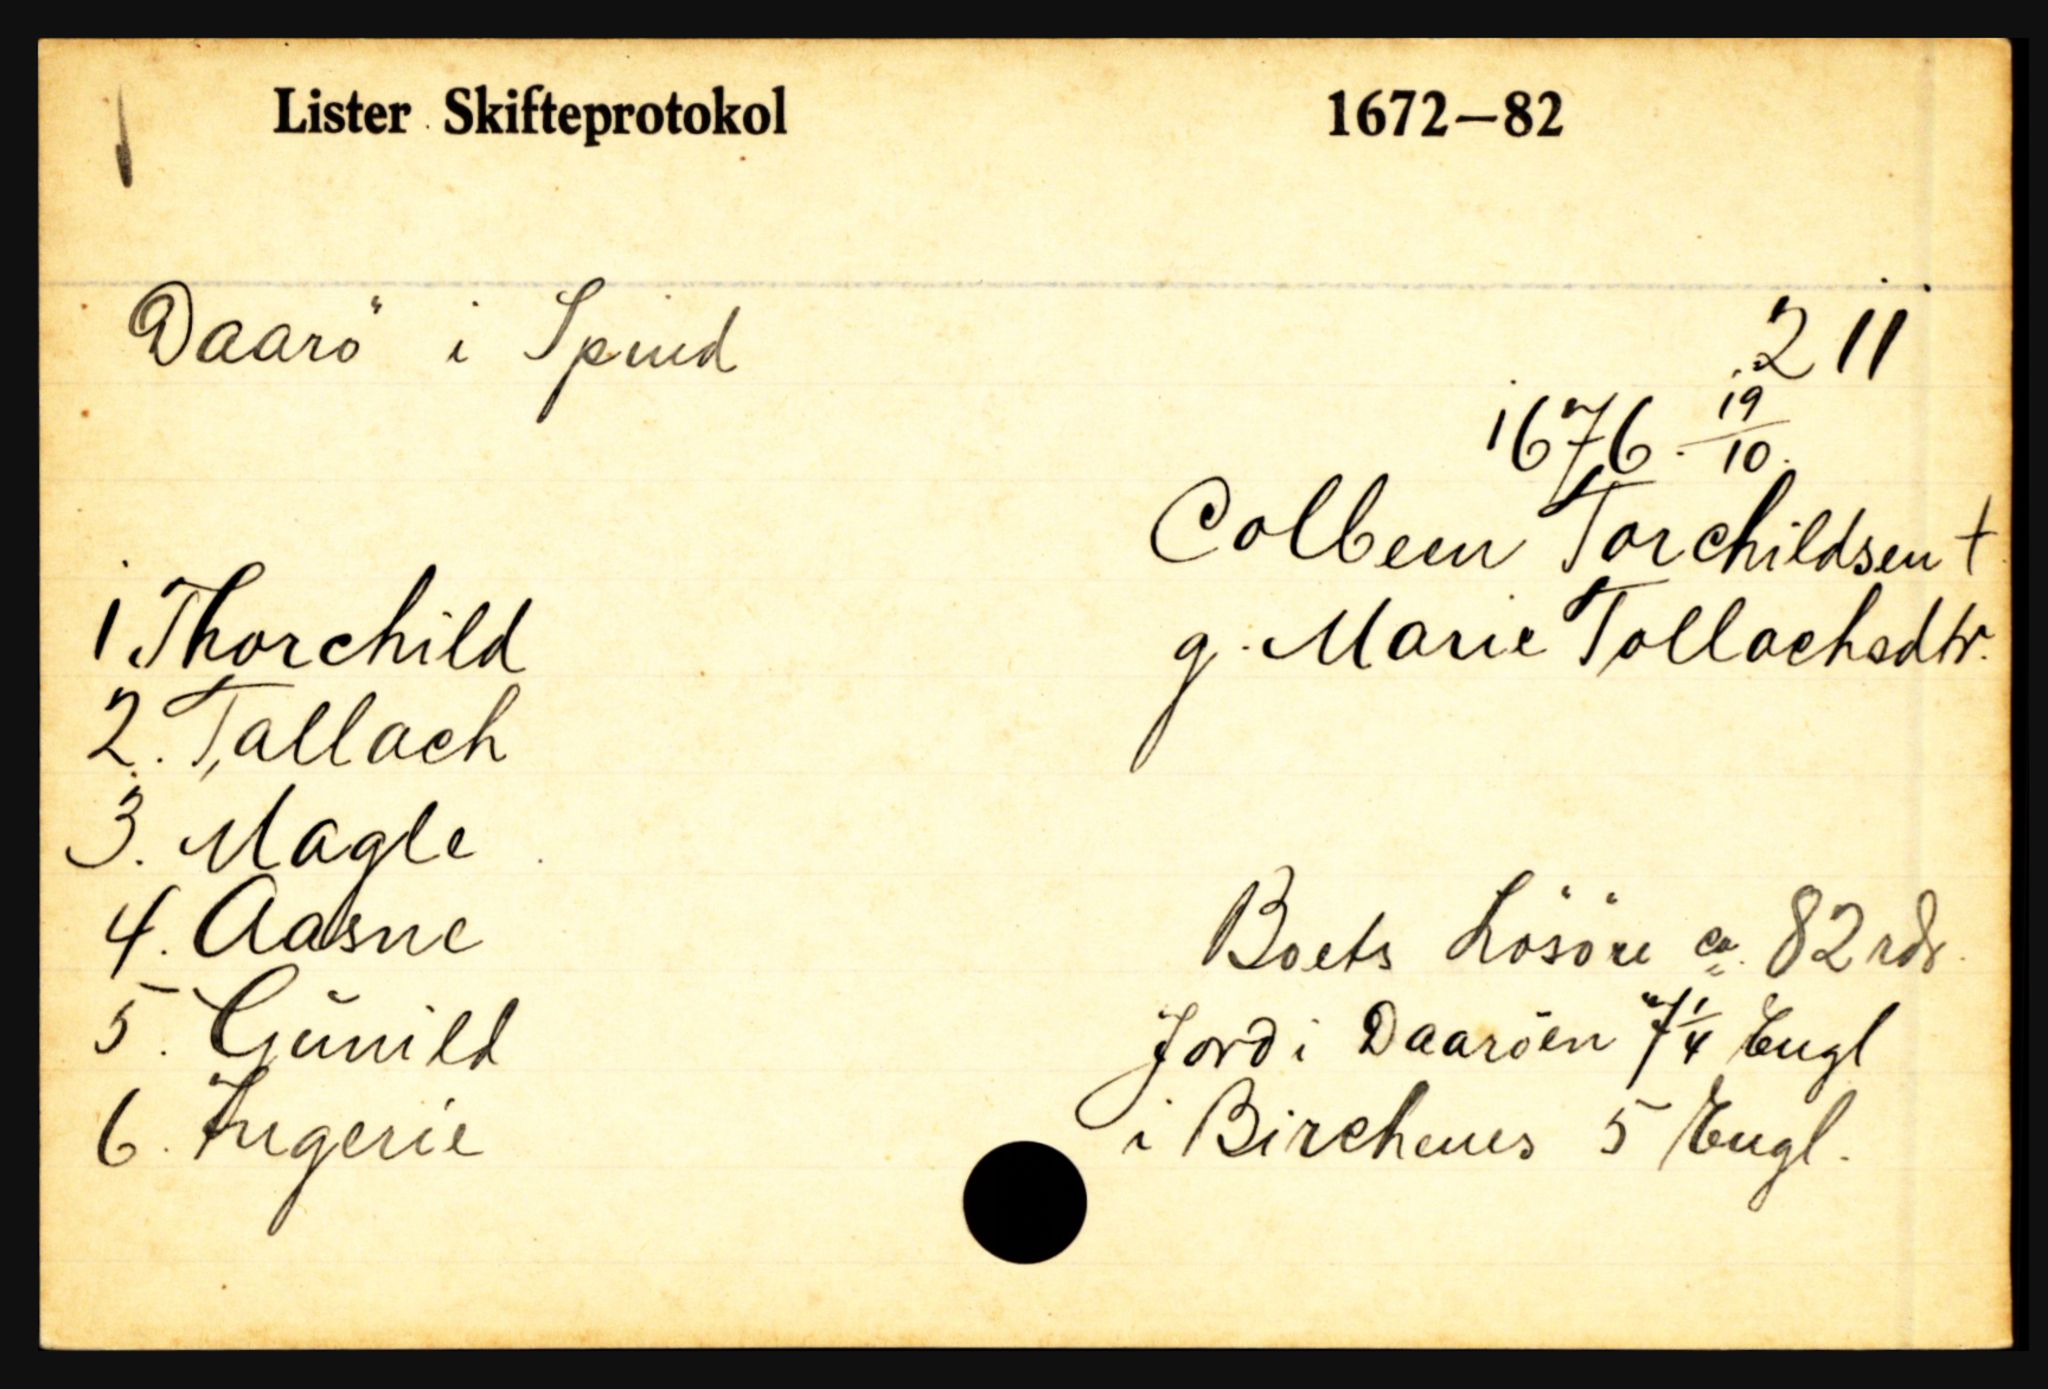 Lister Skifteprotokol 1672—82
Daarö i Spind 211
1676 19/10.
Colbeen Torchildsen †
g. Marie Tollachsdtr.
1 Thorchild
2. Tallach
3. Magle
4. Aasne
5. Gŭnild
6. Ingerie
Boets Lösöre ca. 82 rdr.
Jord i Daaröen 7 1/4 Engl
i Birchenes 5 Engl.